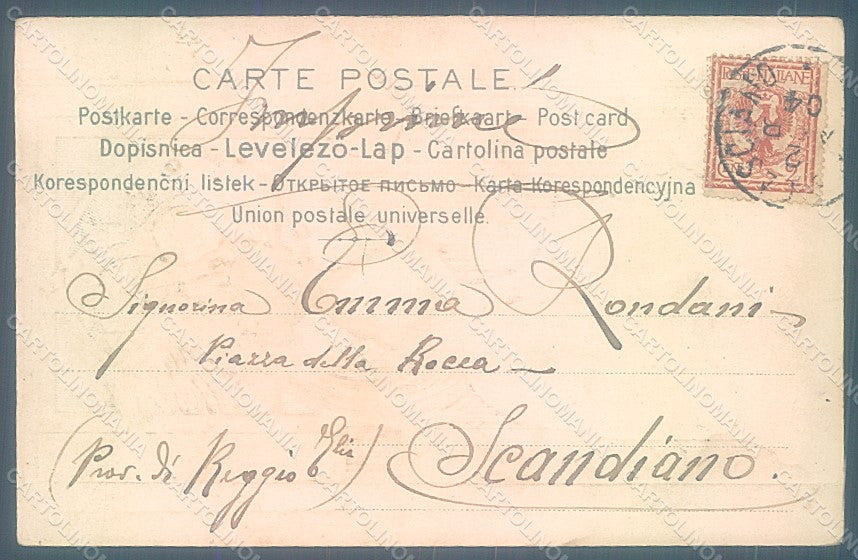 CARTE POSTALE.
Postkarte - Correspondenzkarte - Briefkaart - Post card
Dopisnica - Levelező-Lap - Cartolina postale
Korespondenčni listek - Открытое письмо - Karta Korespondencyjna
Union postale universelle.
Signorina Emma Rondani
Piazza della Rocca
Scandiano.
(Prov. di Reggio Elia)
CARTOLINOMANIA